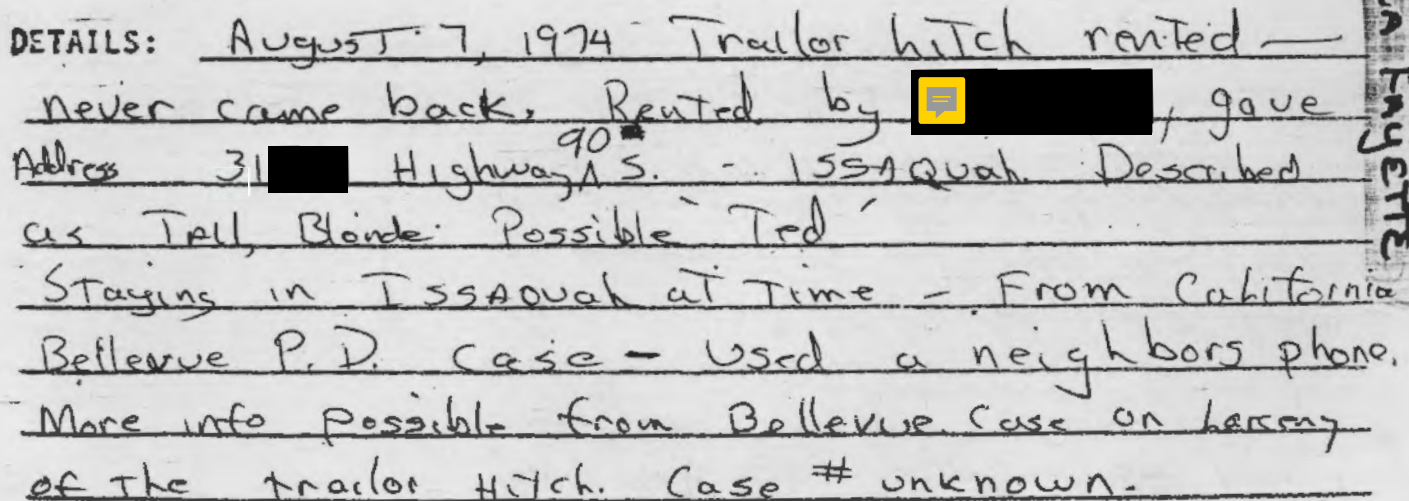 DETAILS: August 7, 1974 Trailor hitch rented —
never came back. Rented by , gave
Address 31 Highway 90 S. - ISSAQuah. Described
as Tall, Blonde. Possible 'Ted'
Staying in ISSAQuah at Time - From California
Bellevue P.D. Case - Used a neighbors phone.
More info possible from Bellevue Case on Larceny
of The trailor Hitch. Case # unknown.
LA FAYETTE